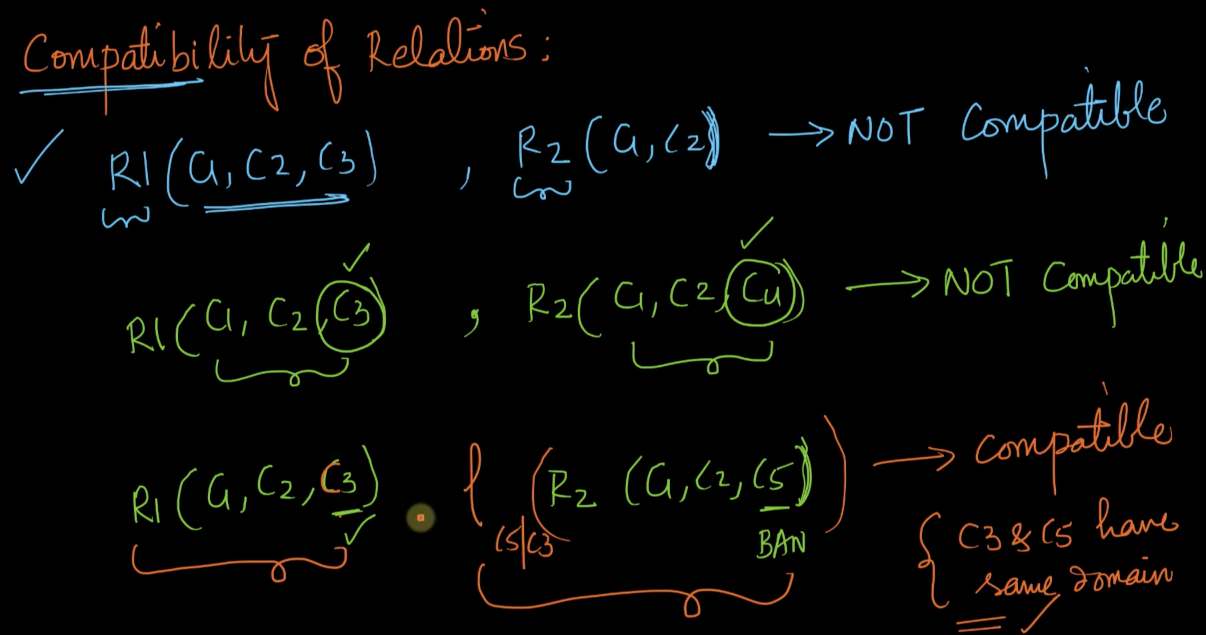 Compatibility of Relations:
R1(C1, C2, C3) , R2(C1, C2) → NOT Compatible
R1(C1, C2, C3) , R2(C1, C2, C4) → NOT Compatible
R1(C1, C2, C3) ρ C5|C3 (R2 (C1, C2, C5)) → Compatible
BAN
{ C3 & C5 have
same domain